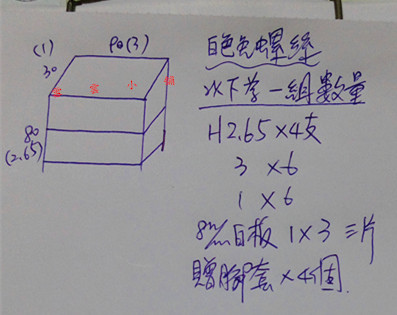 (1)
30
90(3)
80
(2.65)
白色免螺絲
以下為一組數量
H2.65×4支
3 ×6
1 ×6
8m/m白板 1×3 三片
贈腳套×4個